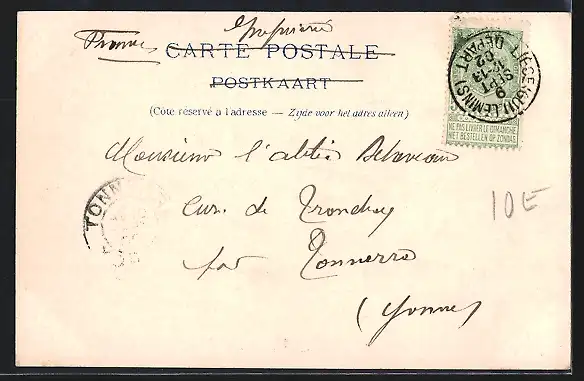 Imprimé
CARTE POSTALE
POSTKAART
(Côté réservé à l'adresse — Zijde voor het adres alleen)
LIEGE (GUILLEMINS)
DEPART
9
SEPT
02
NE PAS LIVRER LE DIMANCHE
NIET BESTELLEN OP ZONDAG
Monsieur l'abbé
Curé de Tronchoy
par Tonnerre
(Yonne)
TONN
10E